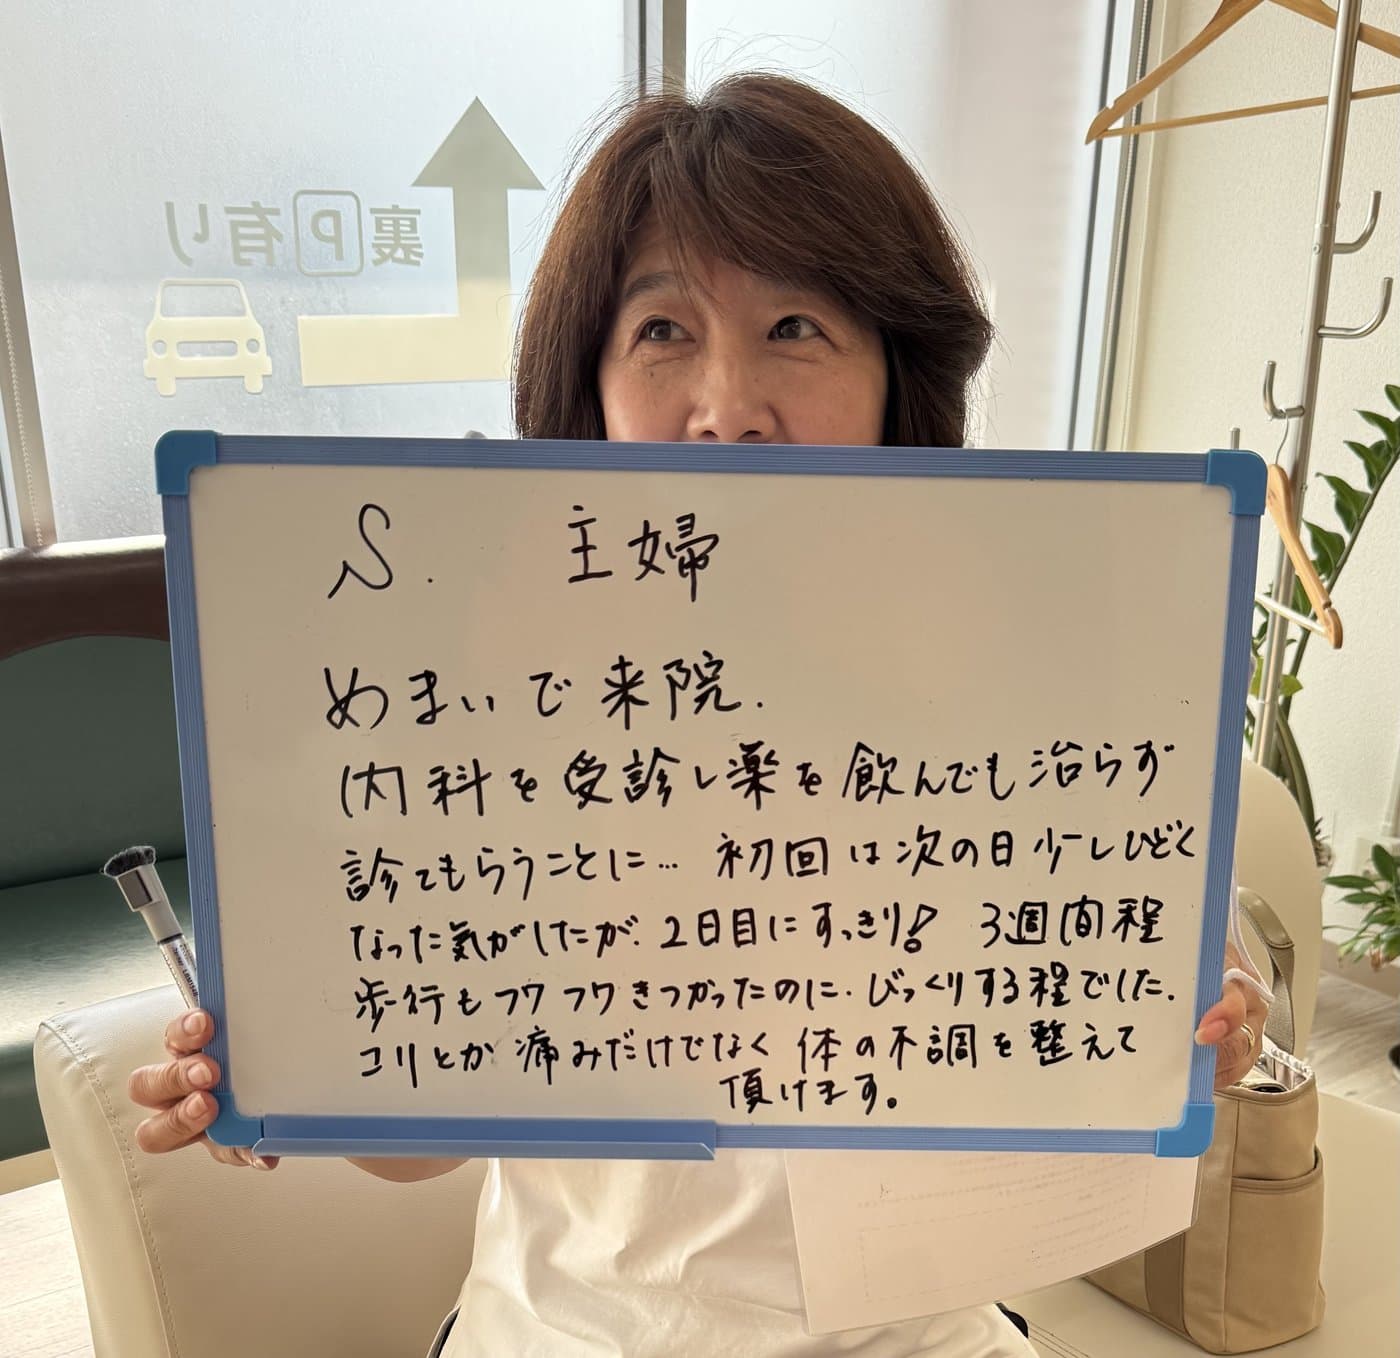 裏P有り
S. 主婦
めまいで来院.
内科を受診し薬を飲んでも治らず
診てもらうことに… 初回は次の日少しひどく
なった気がしたが、2日目にすっきり! 3週間程
歩行もフワフワきつかったのに、びっくりする程でした.
コリとか痛みだけでなく 体の不調を整えて
頂けます。